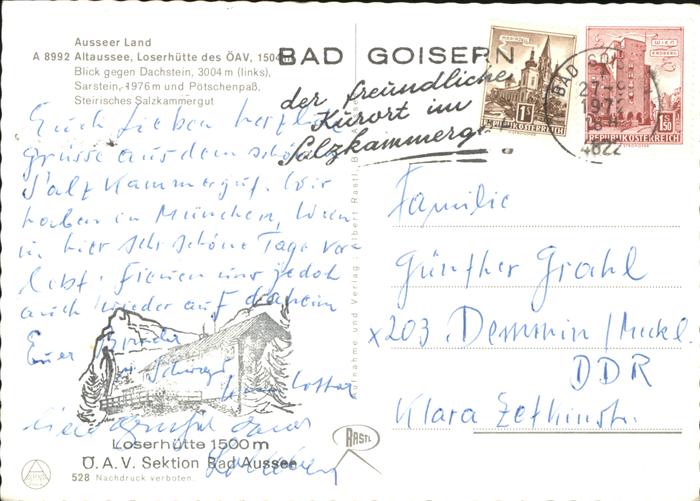 Ausseer Land
A 8992 Altaussee, Loserhütte des ÖAV, 1504 m
Blick gegen Dachstein, 3004 m (links),
Sarstein, 1976 m und Pötschenpaß,
Steirisches Salzkammergut
BAD GOISERN
der freundliche
Kurort im
Salzkammergut
MARIAZELL
1 S
REPUBLIK ÖSTERREICH
WIEN
ERDBERG
1.50
REPUBLIK ÖSTERREICH
BAD GOISERN
27.-9.
1972
4822
Euch Lieben herzliche
Grüsse aus dem schönen
Salzkammergut. Wir
haben in München, Wien
u. hier sehr schöne Tage ver-
lebt. Freuen uns jedoch
auch wieder auf daheim
Euer Bruder
u. Schwager
Lothar
Familie
Günther Grahl
x203 Demmin/Meckl.
DDR
Klara Zetkinstr.
Aufnahme und Verlag: Albert Rastl, Bad Aussee
RASTL
Loserhütte 1500 m
Ö.A.V. Sektion Bad Aussee
528 Nachdruck verboten.